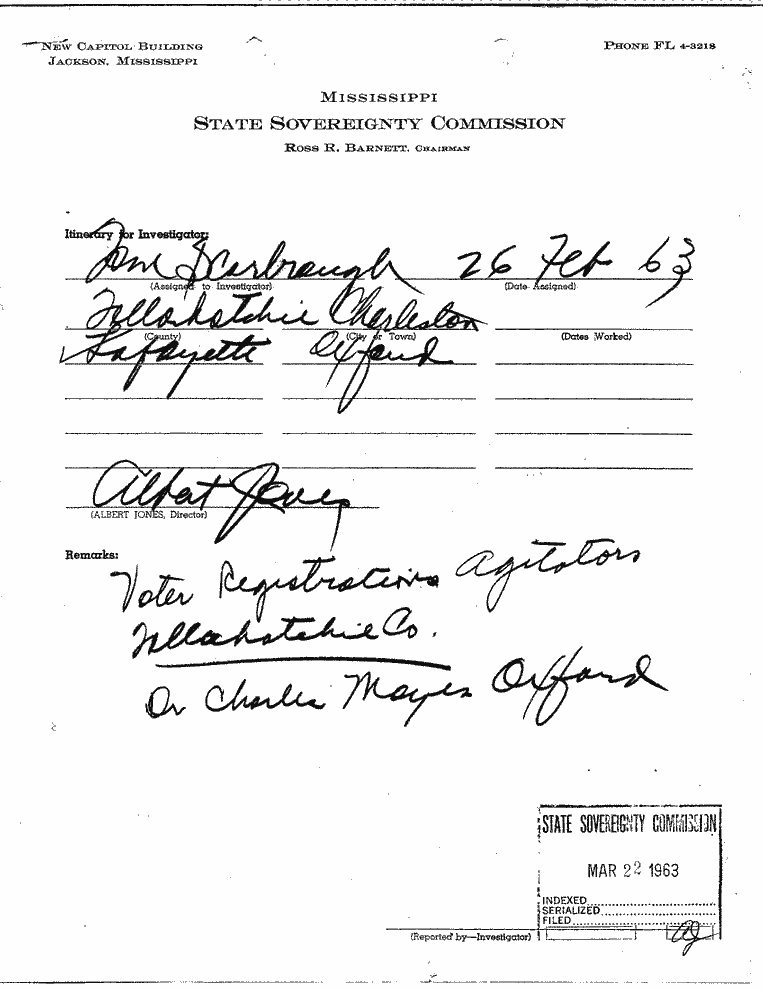 NEW CAPITOL BUILDING
JACKSON, MISSISSIPPI
PHONE FL 4-3218
MISSISSIPPI
STATE SOVEREIGNTY COMMISSION
ROSS R. BARNETT, CHAIRMAN
Itinerary for Investigator:
Tom Scarbrough 26 Feb 63
(Assigned to Investigator) (Date Assigned)
Tallahatchie Charleston
(County) (City or Town) (Dates Worked)
Lafayette Oxford
Albert Jones
(ALBERT JONES, Director)
Remarks:
Voter Registrations Agitators
Tallahatchie Co.
Dr Charles Mayes Oxford
STATE SOVEREIGNTY COMMISSION
MAR 22 1963
INDEXED
SERIALIZED
FILED
(Reported by—Investigator)
aj